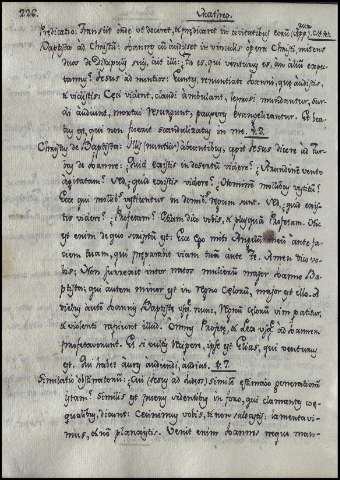 226.
Prædicatio: Transiit inde ut doceret, et prædicaret in civitatibus eorum,
Baptista ad Christum: Joannes cum audisset in vinculis opera Christi, mittens
duos de Discipulis suis, ait illi: Tu es, qui venturus es, an alium expec-
tamus? Jesus ad nuntios: Euntes, renuntiate Joanni, quæ audistis,
et vidistis: Cæci vident, claudi ambulant, leprosi mundantur, sur-
di audiunt, mortui resurgunt, pauperes evangelizantur. Et bea-
tus est, qui non fuerit scandalizatus in me.
Christus de Baptista: Illis abeuntibus, cæpit Jesus dicere ad tur-
bas de Joanne: Quid existis in desertum videre? Arundinem vento
agitatam? Sed, quid existis videre? Hominem mollibus vestitum?
Ecce qui mollibus vestiuntur in domibus regum sunt. Sed, quid exis-
tis videre? Prophetam? Etiam dico vobis, et plusquam Prophetam. Hic
est enim de quo scriptum est: Ecce Ego mitto Angelum meum ante fa-
ciem tuam, qui præparabit viam tuam ante Te. Amen dico vo-
bis, Non surrexit inter natos mulierum major Joanne Ba-
ptista; qui autem minor est in regno Cælorum, major est illo. A
diebus autem Joannis Baptistæ usque nunc, Regnum Cælorum vim patitur,
et violenti rapiunt illud. Omnes Prophetæ, et Lex usque ad Joannem
prophetaverunt. Et si vultis recipere, ipse est Elias, qui venturus
est. Qui habet aures audiendi, audiat.
Similatio: Cui similem æstimabo generationem
istam? Similis est pueris sedentibus in foro, qui clamantes co-
æqualibus, dicunt: Cecinimus vobis, et non saltastis: lamentavi-
mus, et non planxistis. Venit enim Joannes neque man-